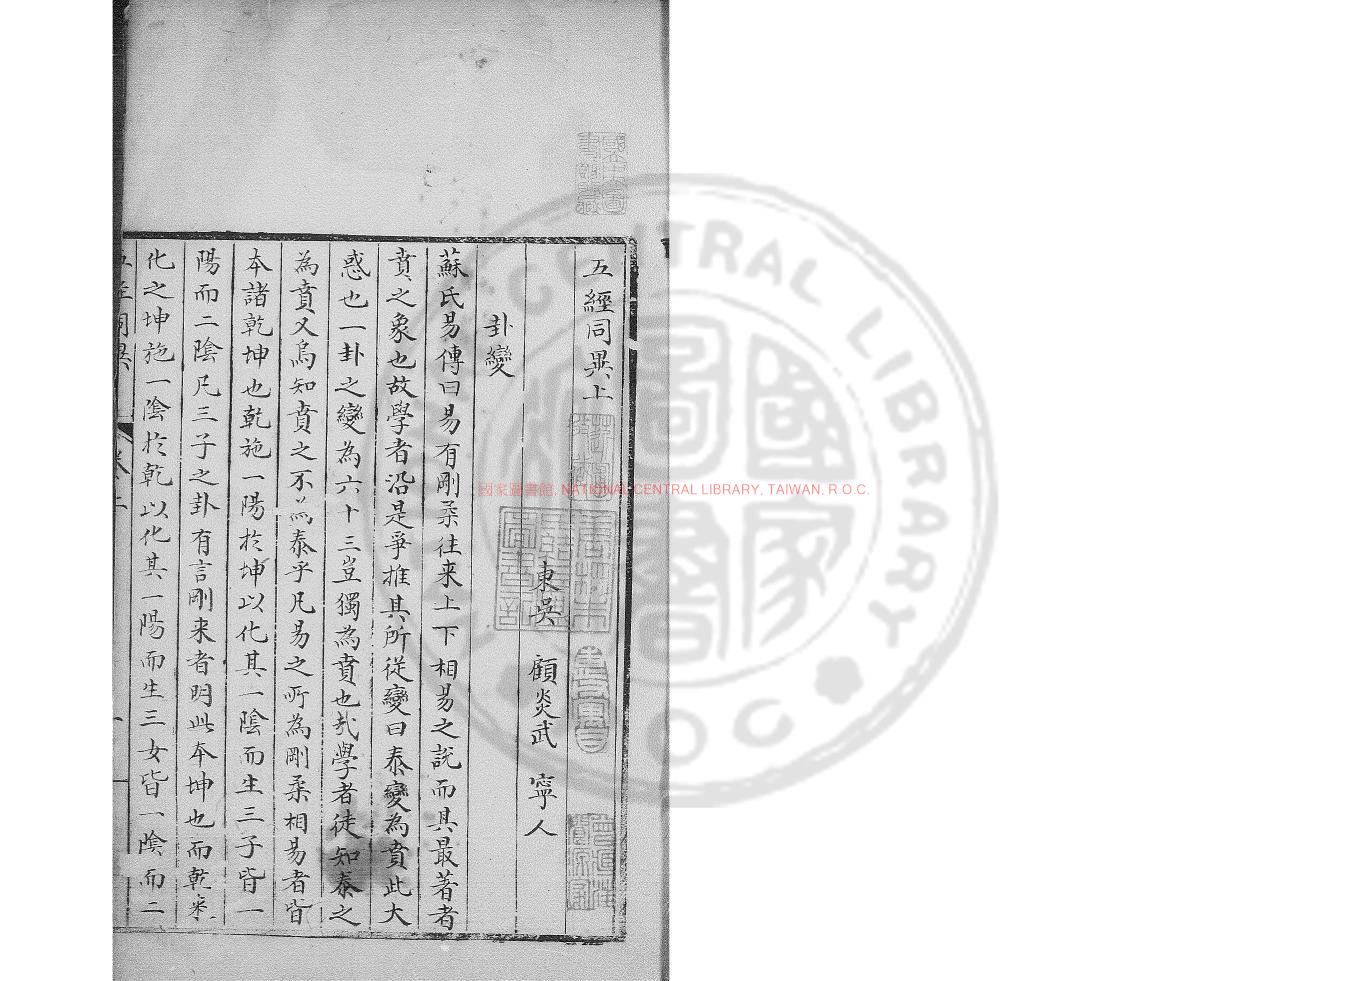 五經同異上
東吳 顧炎武 寧人
卦變
蘇氏易傳曰易有剛柔往来上下相易之說而其最著者
賁之象也故學者沿是爭推其所從變曰泰變為賁此大
惑也一卦之變為六十三豈獨為賁也㢤學者徒知泰之
為賁又烏知賁之不為泰乎凡易之所為剛柔相易者皆
本諸乾坤也乾施一陽於坤以化其一陰而生三子皆一
陽而二陰凡三子之卦有言剛来者明此本坤也而乾来
化之坤施一陰於乾以化其一陽而生三女皆一陰而二
國家圖書館, NATIONAL CENTRAL LIBRARY, TAIWAN, R.O.C.